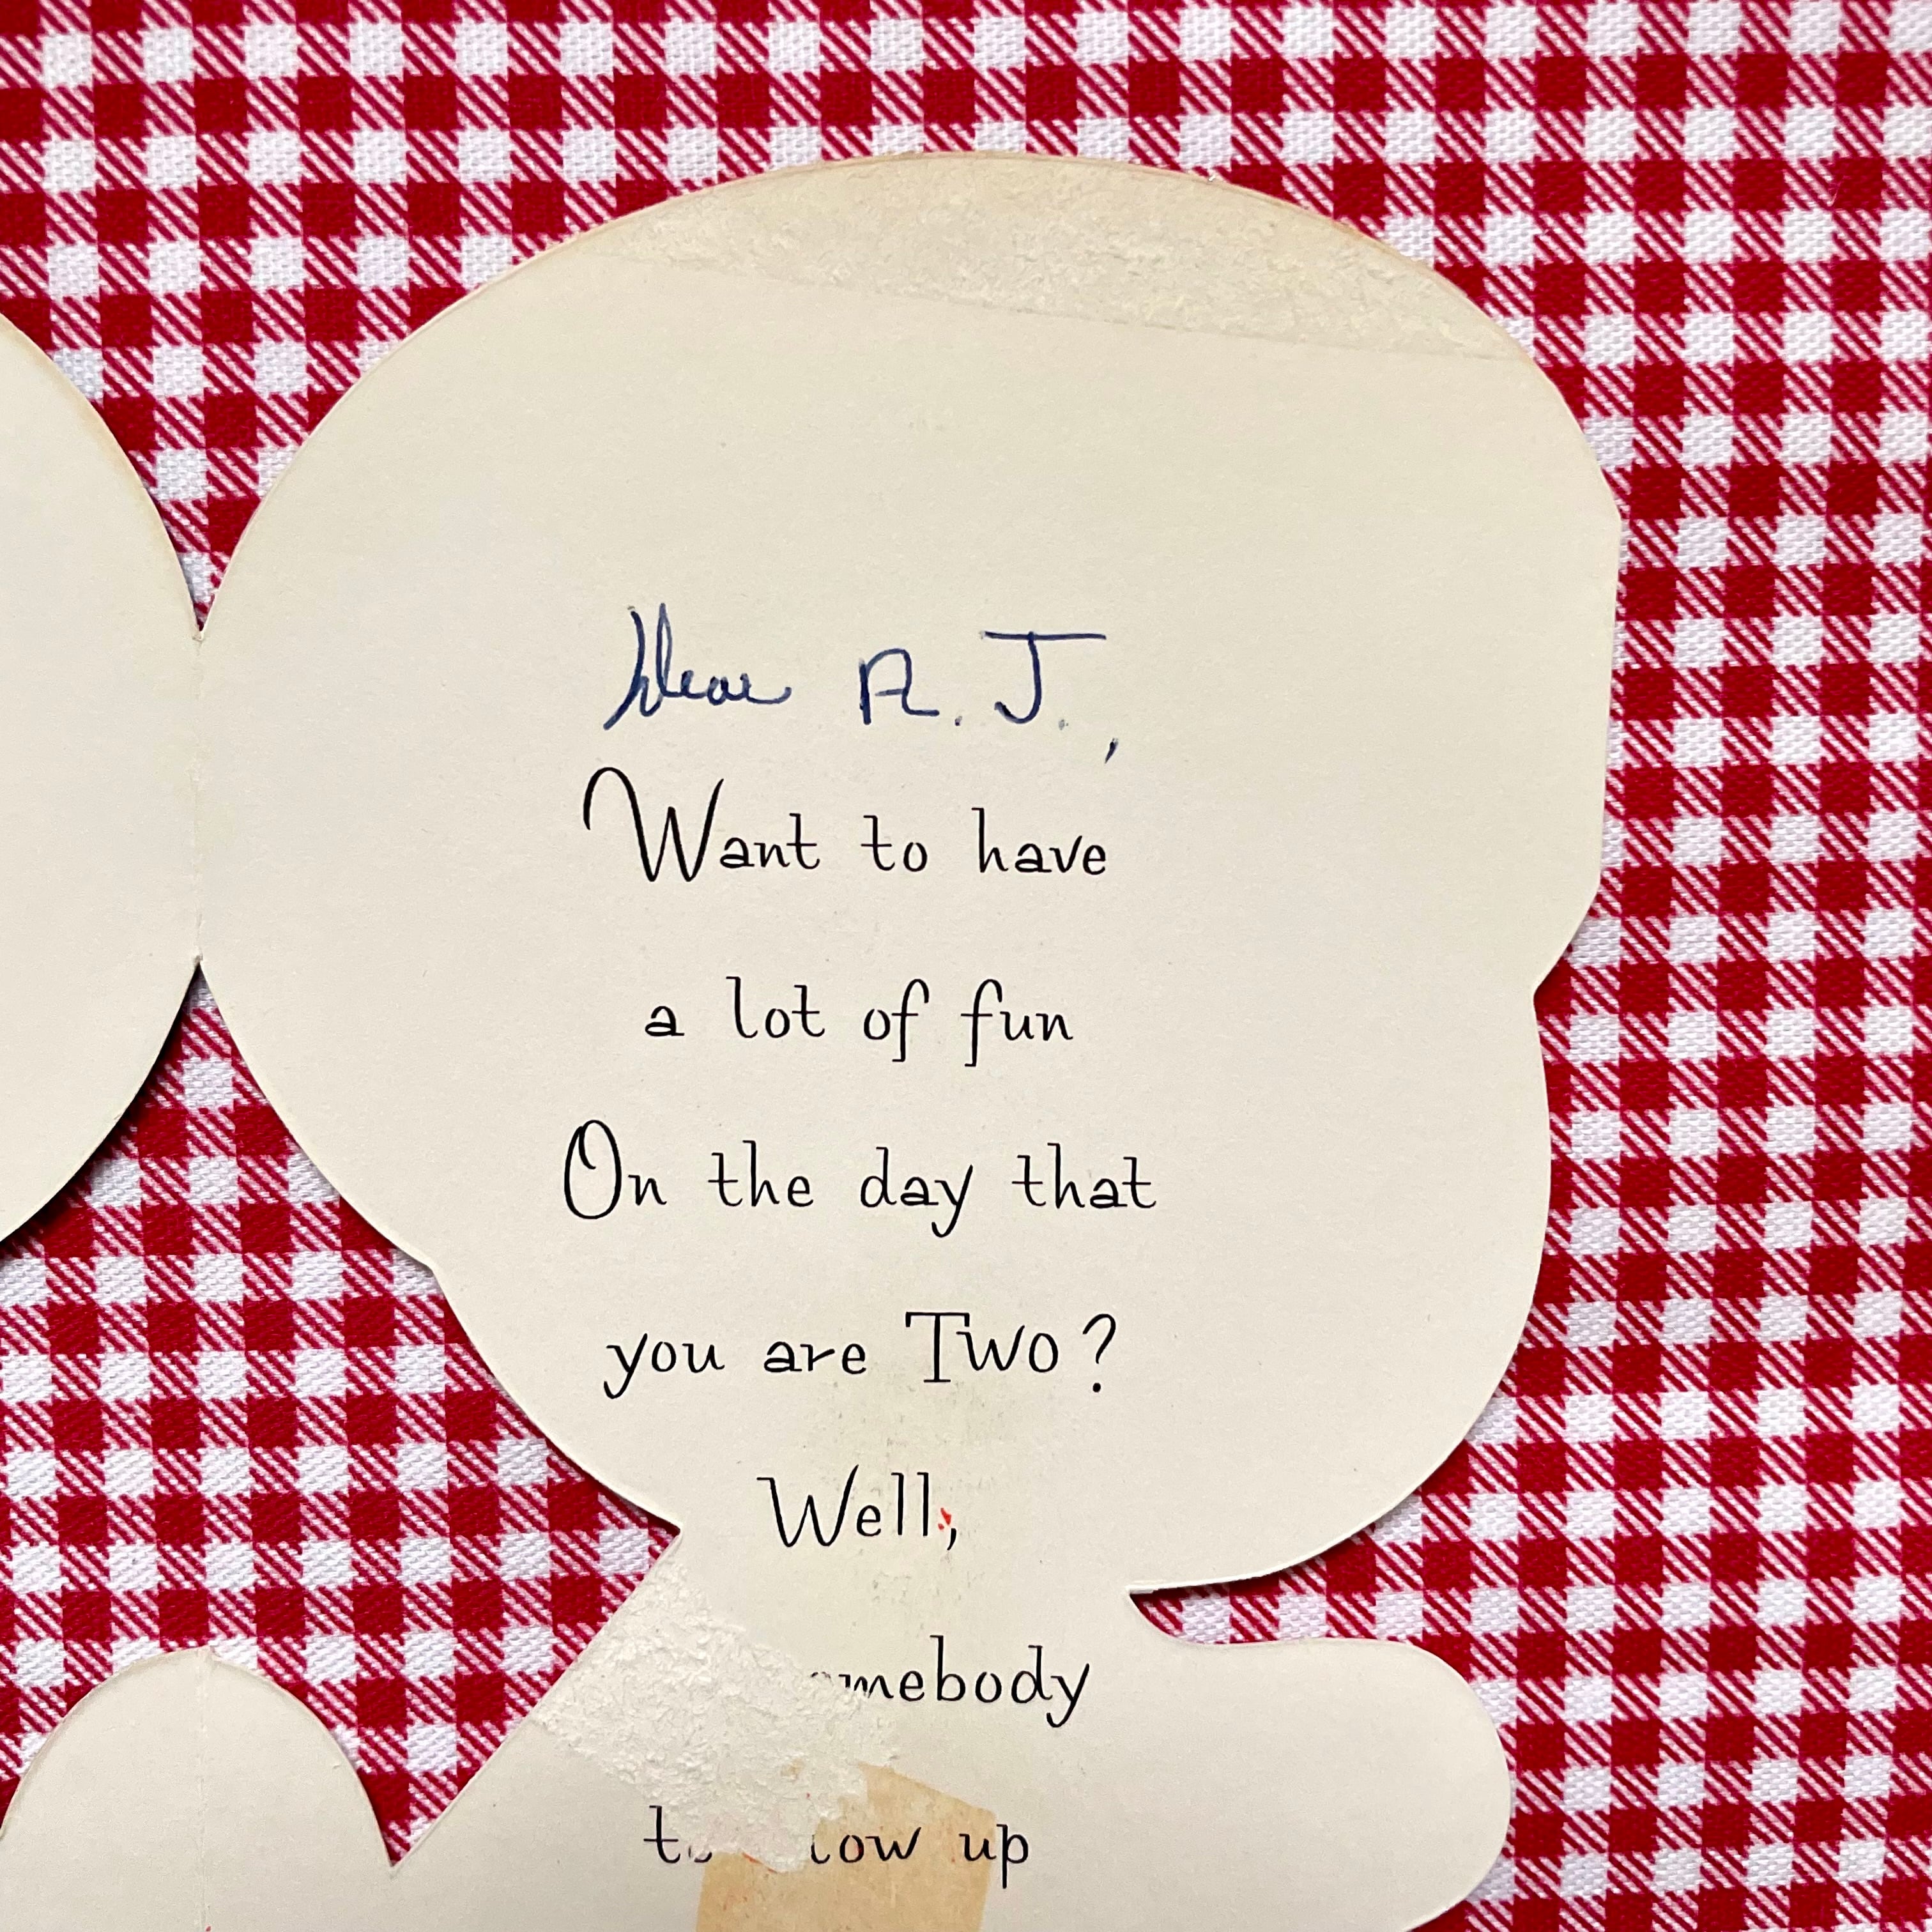 Dear R. J.,
Want to have
a lot of fun
On the day that
you are Two?
Well,
omebody
up